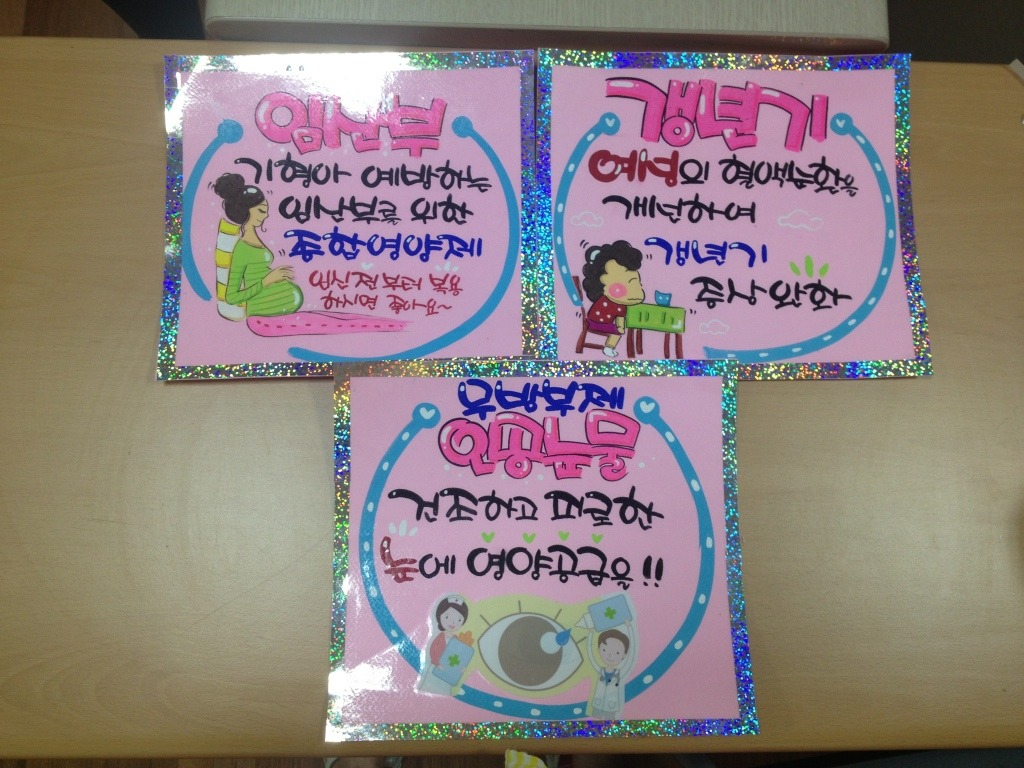 임산부
기형아 예방하는
임산부를 위한
종합영양제
임신전부터 복용
하시면 좋아요~
갱년기
여성의 혈액순환을
개선하여
갱년기
증상 완화
무방부제
인공눈물
건조하고 피로한
눈에 영양공급을!!